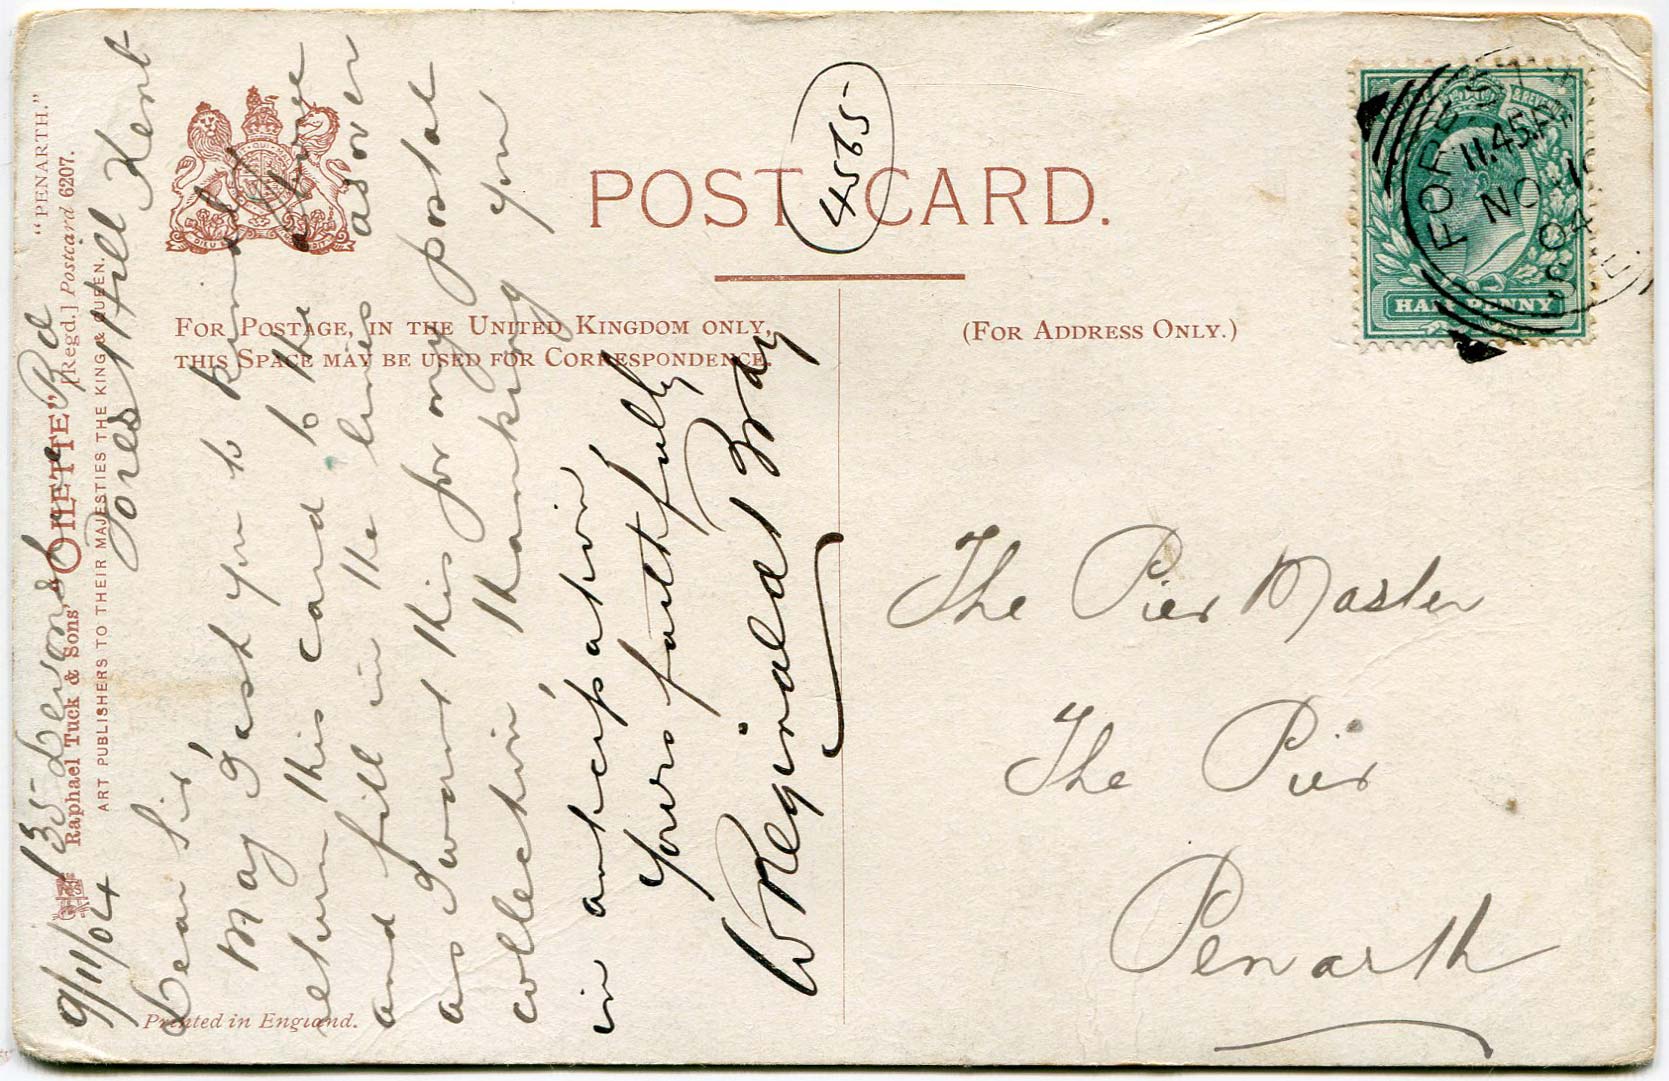 POST CARD.
4565
FOR POSTAGE, IN THE UNITED KINGDOM ONLY,
THIS SPACE MAY BE USED FOR CORRESPONDENCE.
(FOR ADDRESS ONLY.)
"PENARTH."
Raphael Tuck & Sons' "OILETTE" [Regd.] Postcard 6207.
ART PUBLISHERS TO THEIR MAJESTIES THE KING & QUEEN.
Printed in England.
9/11/04 135 Devonshire Rd
Forest Hill Kent
Dear Sir,
May I ask you to kindly
return this card to the above
and fill in the lines as over
as I want this for my postal
collection, thanking you
in anticipation
Yours faithfully
W Reginald Bray
The Pier Master
The Pier
Penarth
HALF PENNY
FOREST
11.45AM
NO 10
04
S.E.